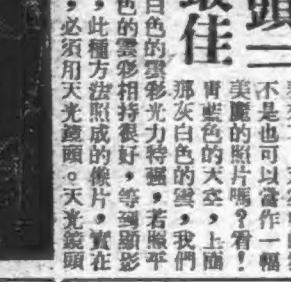 頭一
最佳
不是也可以當作一幅
美麗的照片嗎？看！
青藍色的天空，上面
那灰白色的雲，我們
白色的雲彩光力特强，若照平
色的雲彩相持很好，等到顯影
，此種方法照成的像片，實在
，必須用天光鏡頭。天光鏡頭